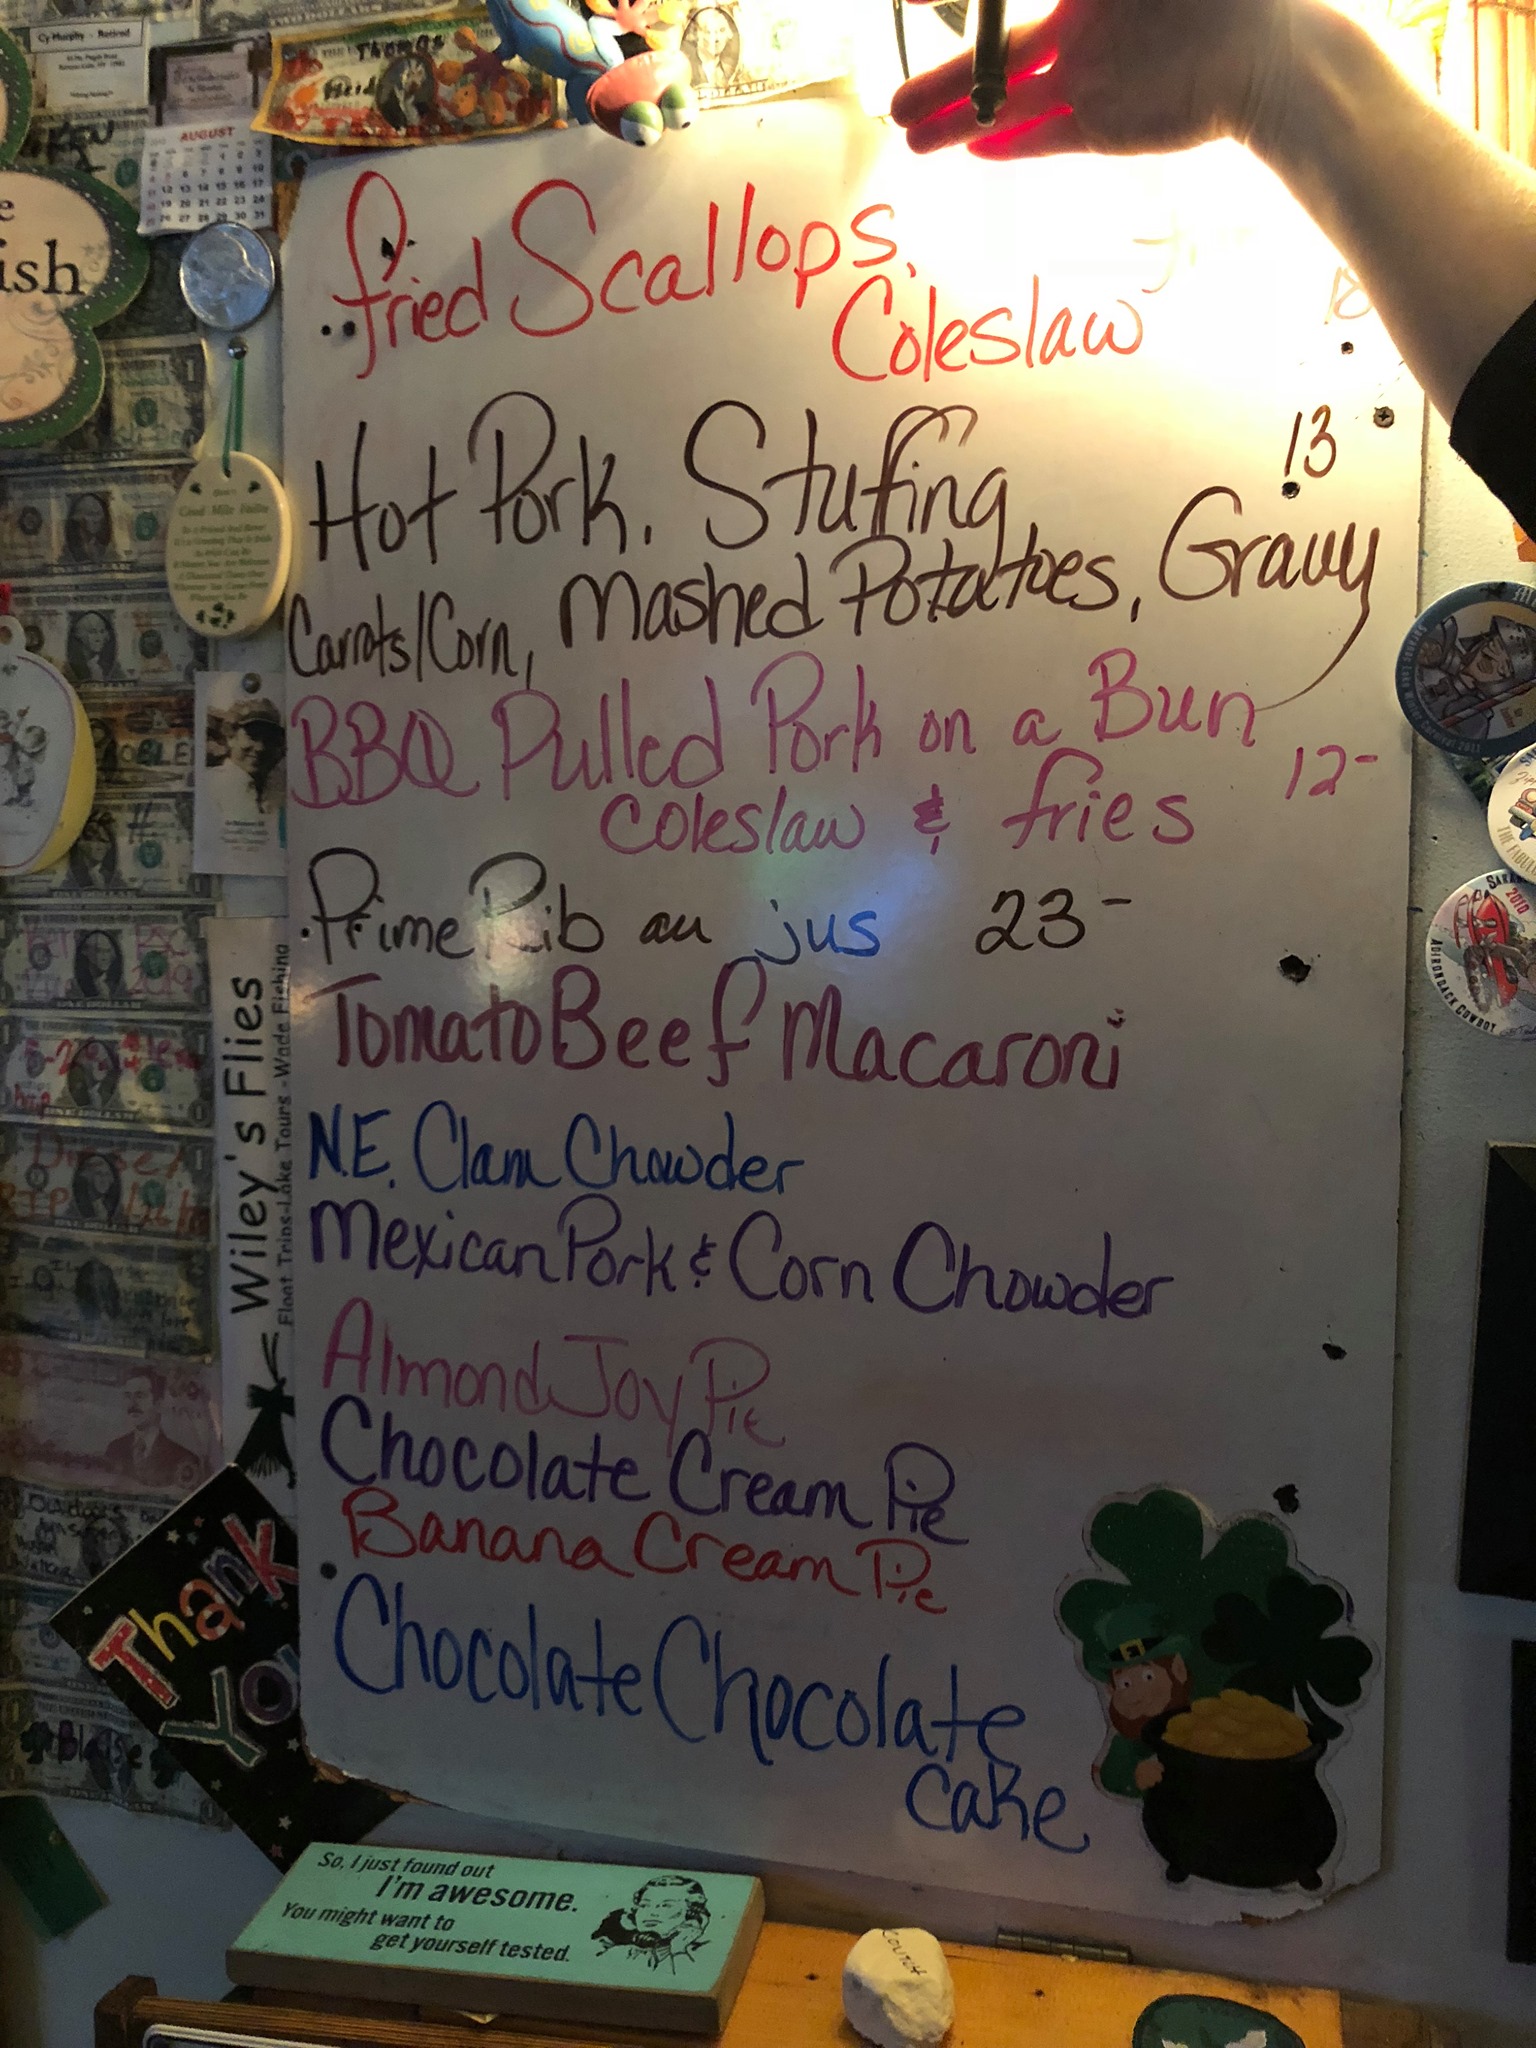 Cy Murphy - Retired
Thomas
Heid
KEN
AUGUST
ish
fried Scallops,
Coleslaw
18
Hot Pork, Stuffing, 13
Carrots/Corn, Mashed Potatoes, Gravy
BBQ Pulled Pork on a Bun
Coleslaw & fries 12-
Prime Rib au jus 23-
Tomato Beef Macaroni
N.E. Clam Chowder
Mexican Pork & Corn Chowder
Almond Joy Pie
Chocolate Cream Pie
Banana Cream Pie
Chocolate Chocolate
Cake
Wiley's Flies
Float Trips-Lake Tours-Wade Fishing
Thank
You
Blaise
So, I just found out
I'm awesome.
You might want to
get yourself tested.
2010
ADIRONDACK COWBOY